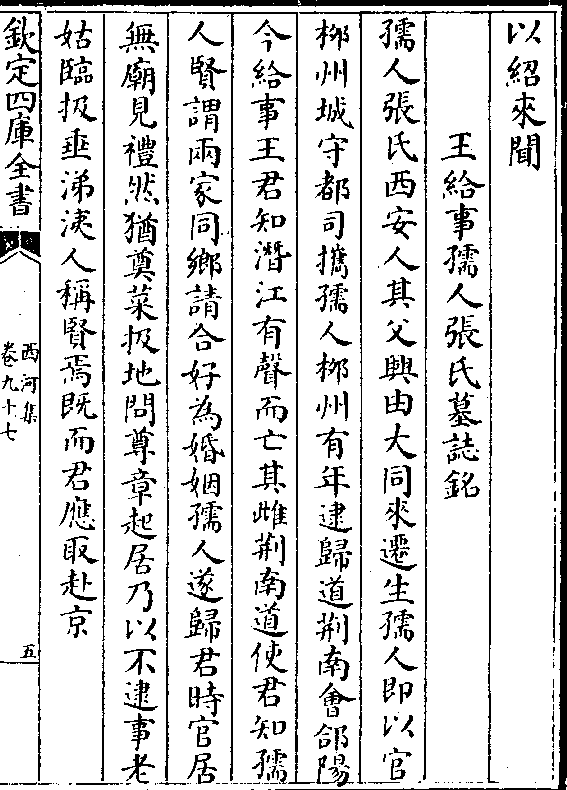 以紹來聞
王給事孺人張氏墓誌銘
孺人張氏西安人其父興由大同來遷生孺人即以官
柳州城守都司攜孺人柳州有年逮歸道荆南會郃陽
今給事王君知潛江有聲而亡其雌荆南道使君知孺
人賢謂兩家同鄉請合好為婚姻孺人遂歸君時官居
無廟見禮然猶奠菜扱地問尊章起居乃以不逮事老
姑臨扱垂涕洟人稱賢焉既而君應取赴京
欽定四庫全書
西河集
卷九十七
五